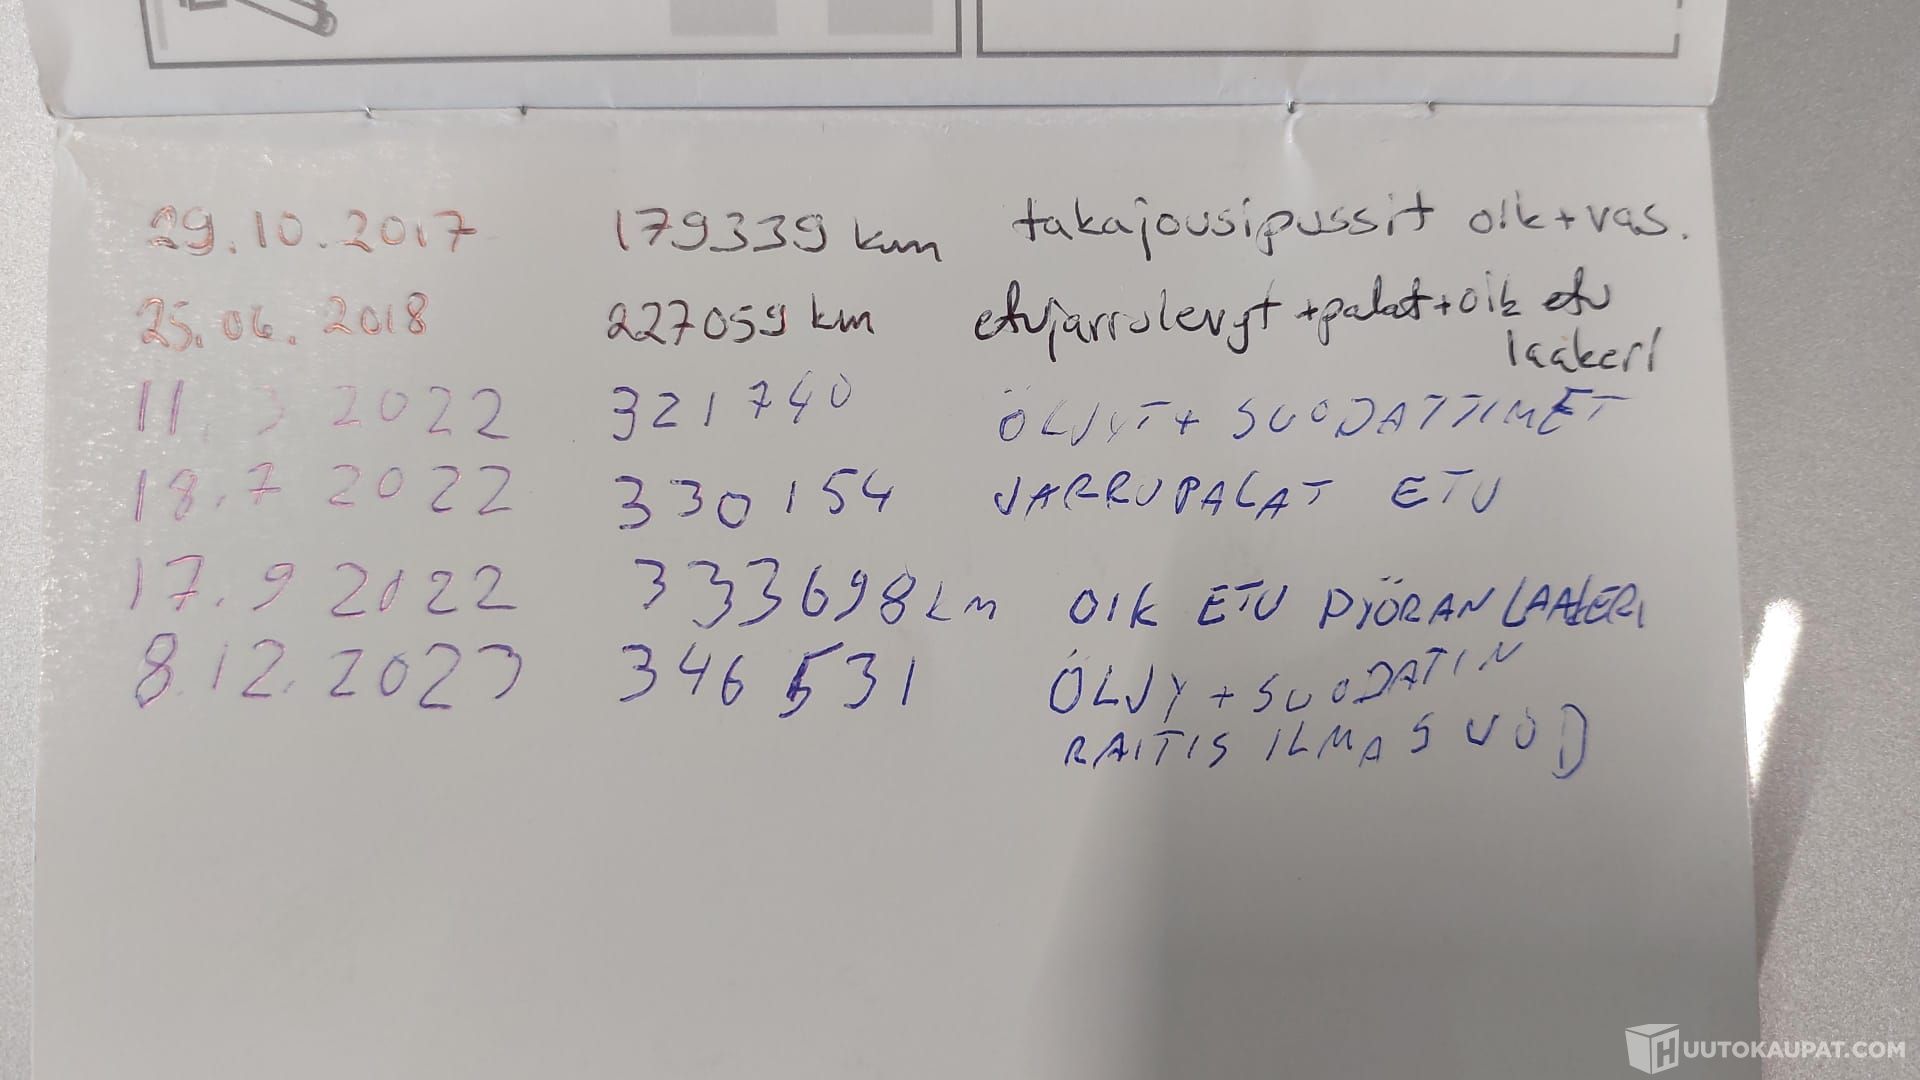 29.10.2017 179339 km takajousipussit oik+vas.
25.06.2018 227059 km etujarrulevyt+palat+oik etu
laakeri
11.3 2022 321740 ÖLJYT+ SUODATTIMET
18.7 2022 330154 JARRUPALAT ETU
17.9 2022 333698km OIK ETU PYÖRAN LAAKERI
8.12.2023 346531 ÖLJY + SUODATIN
RAITIS ILMA SUOD
HUUTOKAUPAT.COM